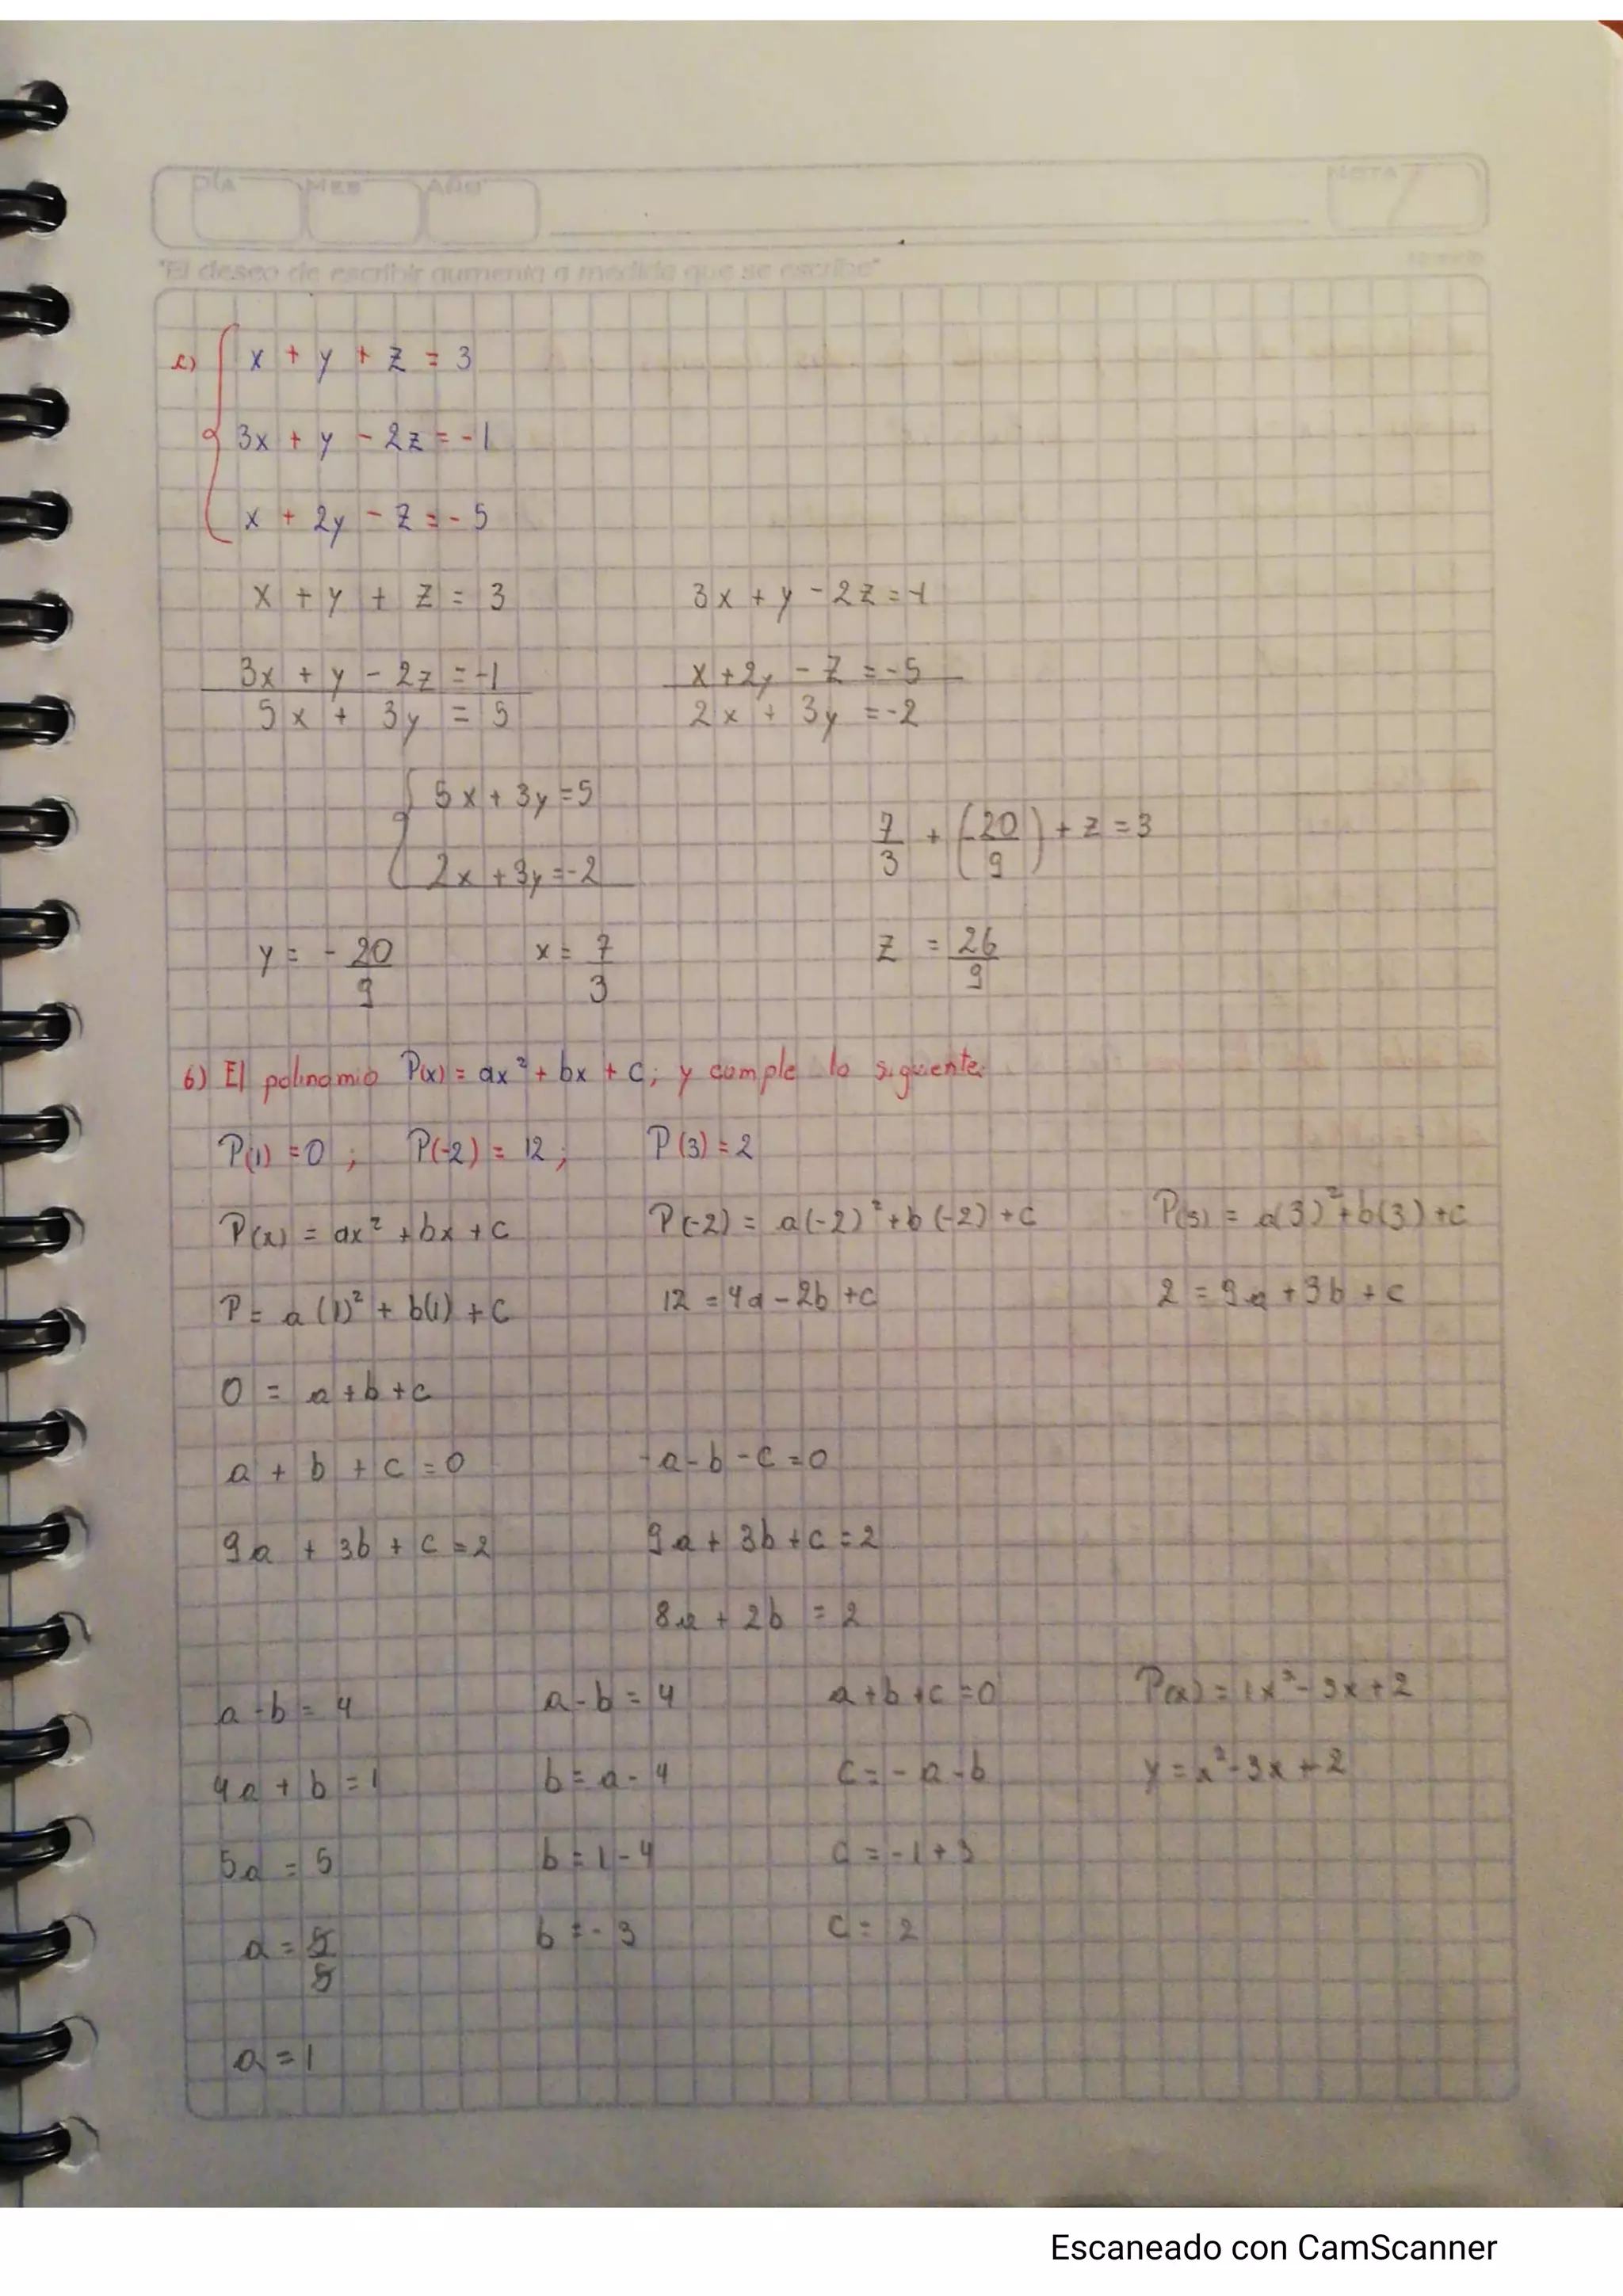 DÍA MES AÑO NOTA
"El deseo de escribir aumenta a medida que se escribe"
c) x + y + z = 3
3x + y - 2z = -1
x + 2y - z = -5
x + y + z = 3 3x + y - 2z = -1
3x + y - 2z = -1 x + 2y - z = -5
5x + 3y = 5 2x + 3y = -2
5x + 3y = 5
7/3 + (-20/9) + z = 3
2x + 3y = -2
y = -20/9 x = 7/3 z = 26/9
6) El polinomio P(x) = ax² + bx + c; y cumple lo siguiente.
P(1) = 0 ; P(-2) = 12 ; P(3) = 2
P(x) = ax² + bx + c P(-2) = a(-2)² + b(-2) + c P(3) = a(3)² + b(3) + c
P = a(1)² + b(1) + c 12 = 4a - 2b + c 2 = 9a + 3b + c
0 = a + b + c
a + b + c = 0 -a - b - c = 0
9a + 3b + c = 2 9a + 3b + c = 2
8a + 2b = 2
a - b = 4 a - b = 4 a + b + c = 0 P(x) = 1x² - 3x + 2
4a + b = 1 b = a - 4 c = -a - b y = x² - 3x + 2
5a = 5 b = 1 - 4 c = -1 + 3
a = 5/5 b = -3 c = 2
a = 1
Escaneado con CamScanner